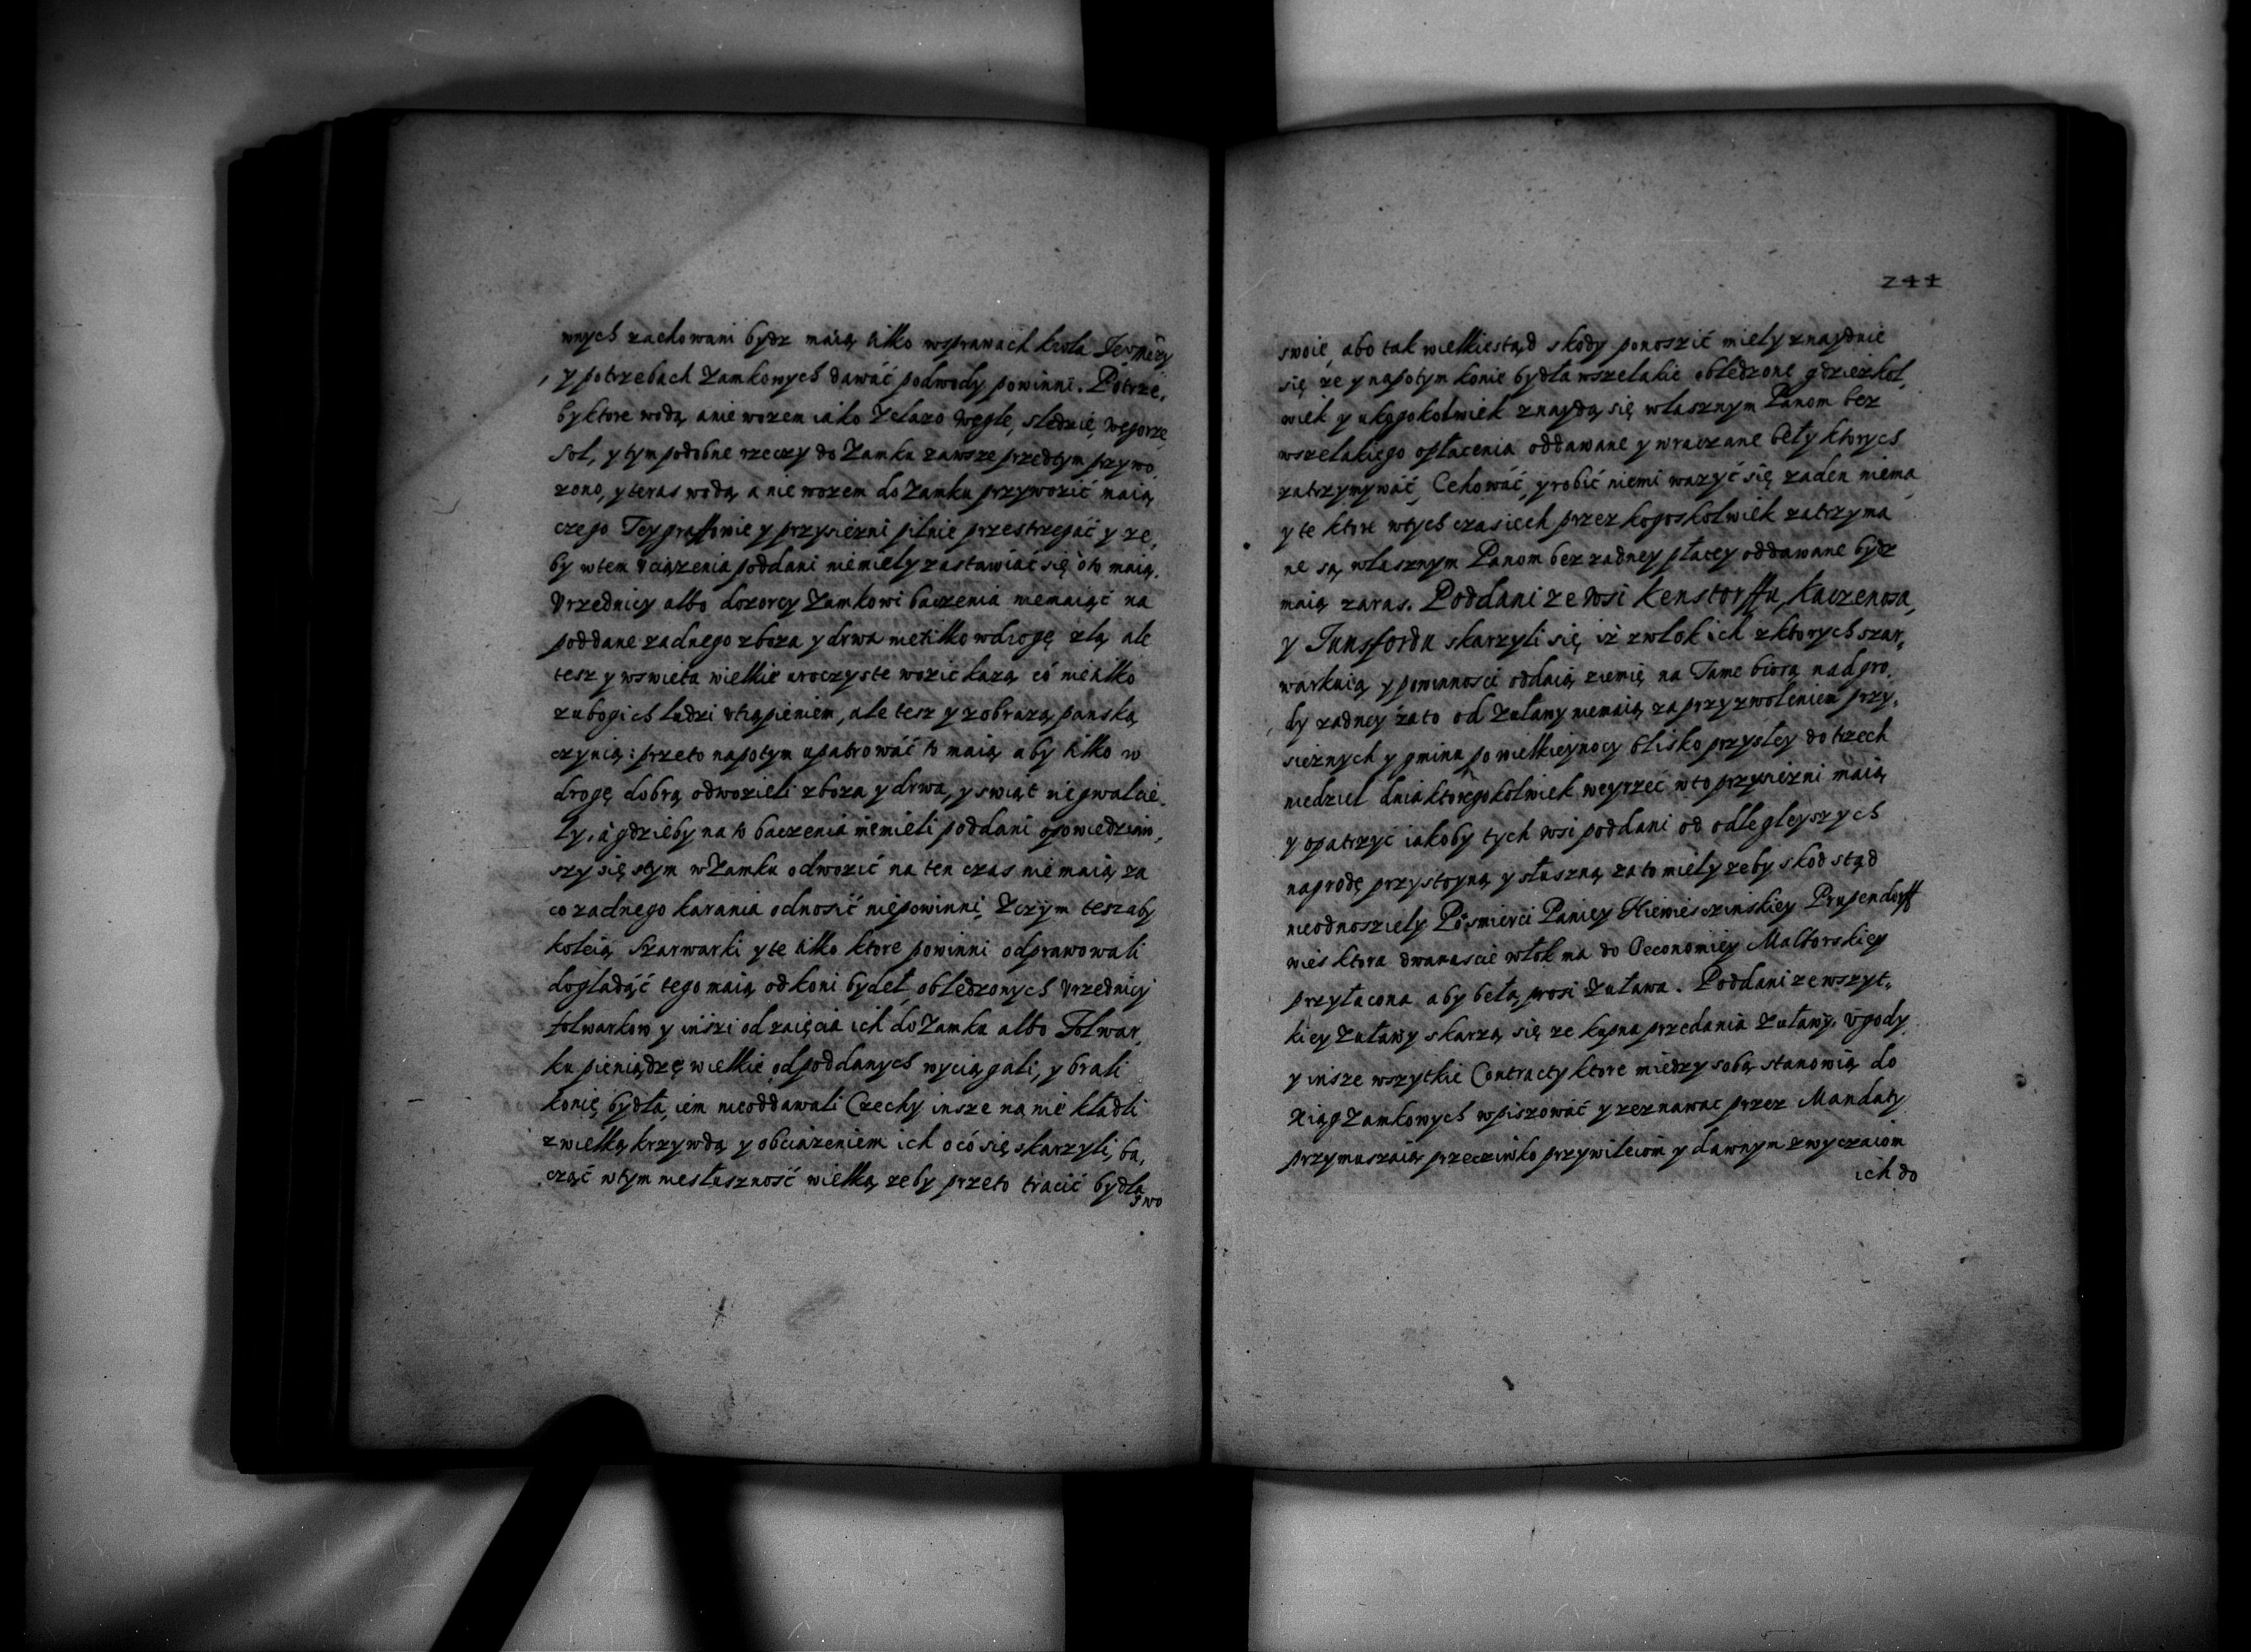 wnych zachowani bydz maią tilko wsprawach krola Je°Mczy
y potrzebach Zamkowych dawać podwody powinni. Potrze,
by ktore wodą anie wozem iako Zelazo Węgle, sledzie, Węgorze
sol, y tym podobne rzeczy do Zamku zawsze przedtym przywo,
zono, yteras wodą a nie wozem do Zamku przywozić maią
czego Teygraffowie y przysiezni pilnie przestrzegać y ze,
by wtem vciązenia poddani niemiely zastawiać się oto maią.
Vrzednicy albo dozorcy Zamkowi baczenia niemaiąc na
poddane zadnego zboza y drwa nietilko wdrogę złą ale
tesz y wswieta wielkie uroczyste wozic kazą co nietilko
zubogich ludzi vtrapieniem, ale tesz y zobrazą panską
czynią: przeto napotym upatrować to maią aby tilko w
drogę dobrą odwozieli zboza y drwa, y swiąt niegwalcie,
ly, a gdzieby na to baczenia niemieli poddani opowiedziaw,
szy się stym wZamku odwozić na ten czas niemaią za
co zadnego karania odnosić niepowinni, Zczym tesz aby
koleią Szarwarki yte tilko ktore powinni odprawowali
dogladać tego maią od koni bydeł obłedzonych Vrzednicy
folwarkow y inszi od zaięcia ich do Zamku albo Folwar,
ku pieniądze wielkie odpoddanych wyciągali, y brali
konie bydła, iem nieoddawali Czechy insze na nie kładli
zwielką krzywdą y obciązeniem ich ocó się skarzyli, ba,
cząć wtym niesłuszność wielką zeby przeto tracić bydła
swo
244
swoie, abo tak wielkie stąd skody ponoszić miely znajdnie
się ze y napotym konie bydła wszelakie obłedzone gdzieżkol,
wiek y ukogokolwiek znaydą się własznym Panom bez
wszelakiego opłacenia oddawane y wraczane beły ktorych
zatrzymywać, Cehować, y robić niemi wazyć się zaden niema
y te ktore wtych czasiech przez kogoskolwiek zatrzyma
ne są własznym Panom bez zadney płacey oddawane bydz
maią zaras. Poddani ze Wsi Kenstorffu, Kaczenosa,
y Tunsfordu skarzyli się iż zwłok ich zktorych szar,
warkuią y powinnosci oddaią ziemię na Tame biorą nadgro,
dy zadney zato od Zuławy niemaią za przyzwoleniem przy,
sieznych y gminu po wielkieynocy blisko przysłey do trzech
niedziel dnia ktoregokolwiek weyrzeć wto przysiezni maią
y opatrzyć iakoby tych Wsi poddani od odległeyszych
nagrodę przystoyną y słuszną zato miely zeby skod stąd
nieodnosziely Po smierci Paniey Niewiesczinskiey Prupendorff
wies ktora dwanascie włok ma do Oeconomiey Malborskiey
przyłacona aby beła, prosi Zuława. Poddani ze wszyt,
kiey Zuławy skarzą się ze kupna przedania Zuławy. Vgody
y insze wszytkie Contracty ktore miedzy sobą stanowią do
Xiąg Zamkowych wpiszować y zeznawac przez Mandaty
przymuszaią przeciwko przywileiom y dawnym zwyczaiom
ich do